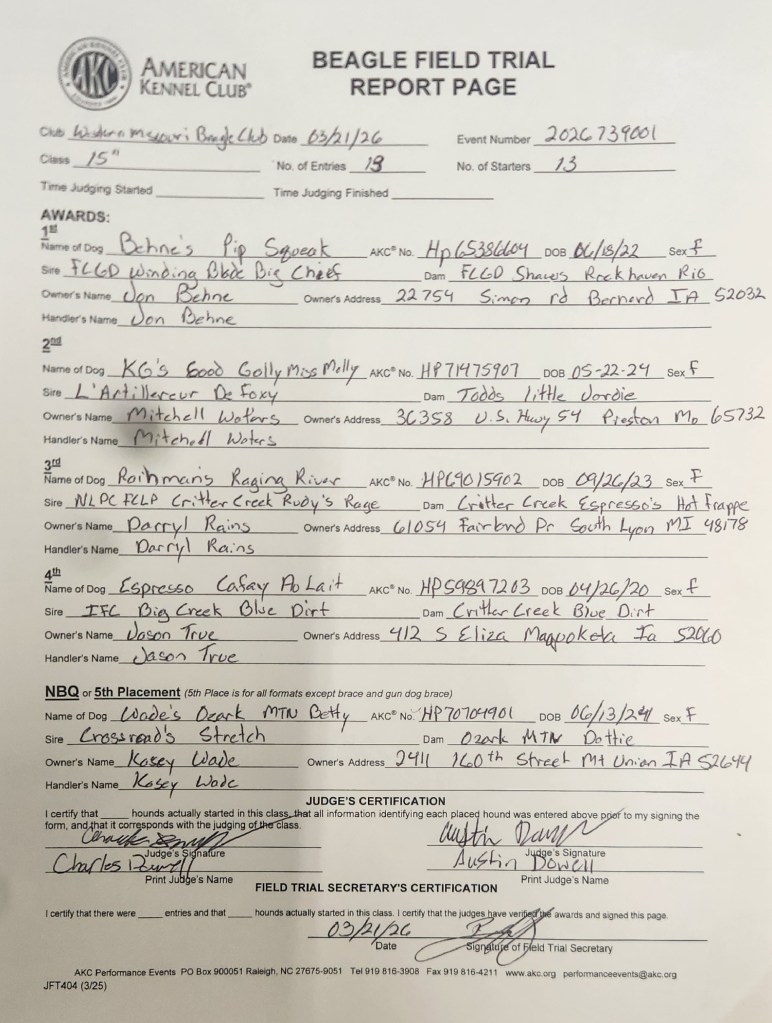 AMERICAN KENNEL CLUB®
BEAGLE FIELD TRIAL
REPORT PAGE
Club Western Missouri Beagle Club Date 03/21/26 Event Number 2026739001
Class 15" No. of Entries 13 No. of Starters 13
Time Judging Started Time Judging Finished
AWARDS:
1st
Name of Dog Behne's Pip Squeak AKC® No. Hp65386604 DOB 06/18/22 Sex f
Sire FCGD Winding Blade Big Chief Dam FCGD Shaws Rockhaven Rio
Owner's Name Jon Behne Owner's Address 22754 Simon rd Bernard IA 52032
Handler's Name Jon Behne
2nd
Name of Dog KG's Good Golly Miss Molly AKC® No. HP71475907 DOB 05-22-24 Sex f
Sire L'Artillereur De Foxy Dam Todds little Jordie
Owner's Name Mitchell Waters Owner's Address 36358 U.S. Hwy 54 Preston Mo 65732
Handler's Name Mitchell Waters
3rd
Name of Dog Raihman's Raging River AKC® No. HP69015902 DOB 09/26/23 Sex F
Sire NLPC FCLP Critter Creek Rudy's Rage Dam Critter Creek Espresso's Hot Frappe
Owner's Name Darryl Rains Owner's Address 61054 Dr South Lyon MI 48178
Handler's Name Darryl Rains
4th
Name of Dog Espresso Cafay Ao Lait AKC® No. HP59897203 DOB 04/26/20 Sex f
Sire IFC Big Creek Blue Dirt Dam Critter Creek Blue Dirt
Owner's Name Jason True Owner's Address 412 S Eliza Maquoketa Ia 52060
Handler's Name Jason True
NBQ or 5th Placement (5th Place is for all formats except brace and gun dog brace)
Name of Dog Wade's Ozark MTN Betty AKC® No. HP70704901 DOB 06/13/24 Sex F
Sire Crossroad's Stretch Dam Ozark MTN Dottie
Owner's Name Kasey Wade Owner's Address 2411 160th Street Mt Union IA 52644
Handler's Name Kasey Wade
JUDGE'S CERTIFICATION
I certify that hounds actually started in this class, that all information identifying each placed hound was entered above prior to my signing the
form, and that it corresponds with the judging of the class.
Judge's Signature Judge's Signature
Charles Dowell Austin Dowell
Print Judge's Name Print Judge's Name
FIELD TRIAL SECRETARY'S CERTIFICATION
I certify that there were entries and that hounds actually started in this class. I certify that the judges have verified the awards and signed this page.
03/21/26
Date Signature of Field Trial Secretary
AKC Performance Events PO Box 900051 Raleigh, NC 27675-9051 Tel 919 816-3908 Fax 919 816-4211 www.akc.org performanceevents@akc.org
JFT404 (3/25)